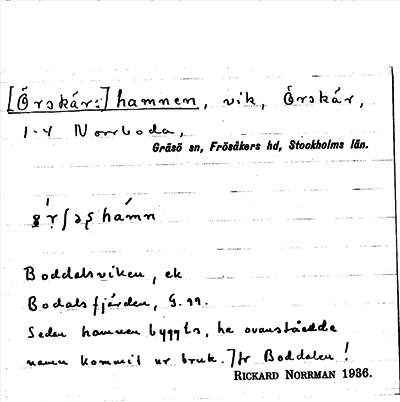 [Örskärs:] hamnen, vik, Örskär,
1:4 Norrboda,
Gräsö sn, Frösåkers hd, Stockholms län.
Boddalsviken, ek
Bodalsfjärden, G. 99.
Sedan hamnen byggts, ha ovanstående
namn kommit ur bruk. Jfr Boddalen!
RICKARD NORRMAN 1936.